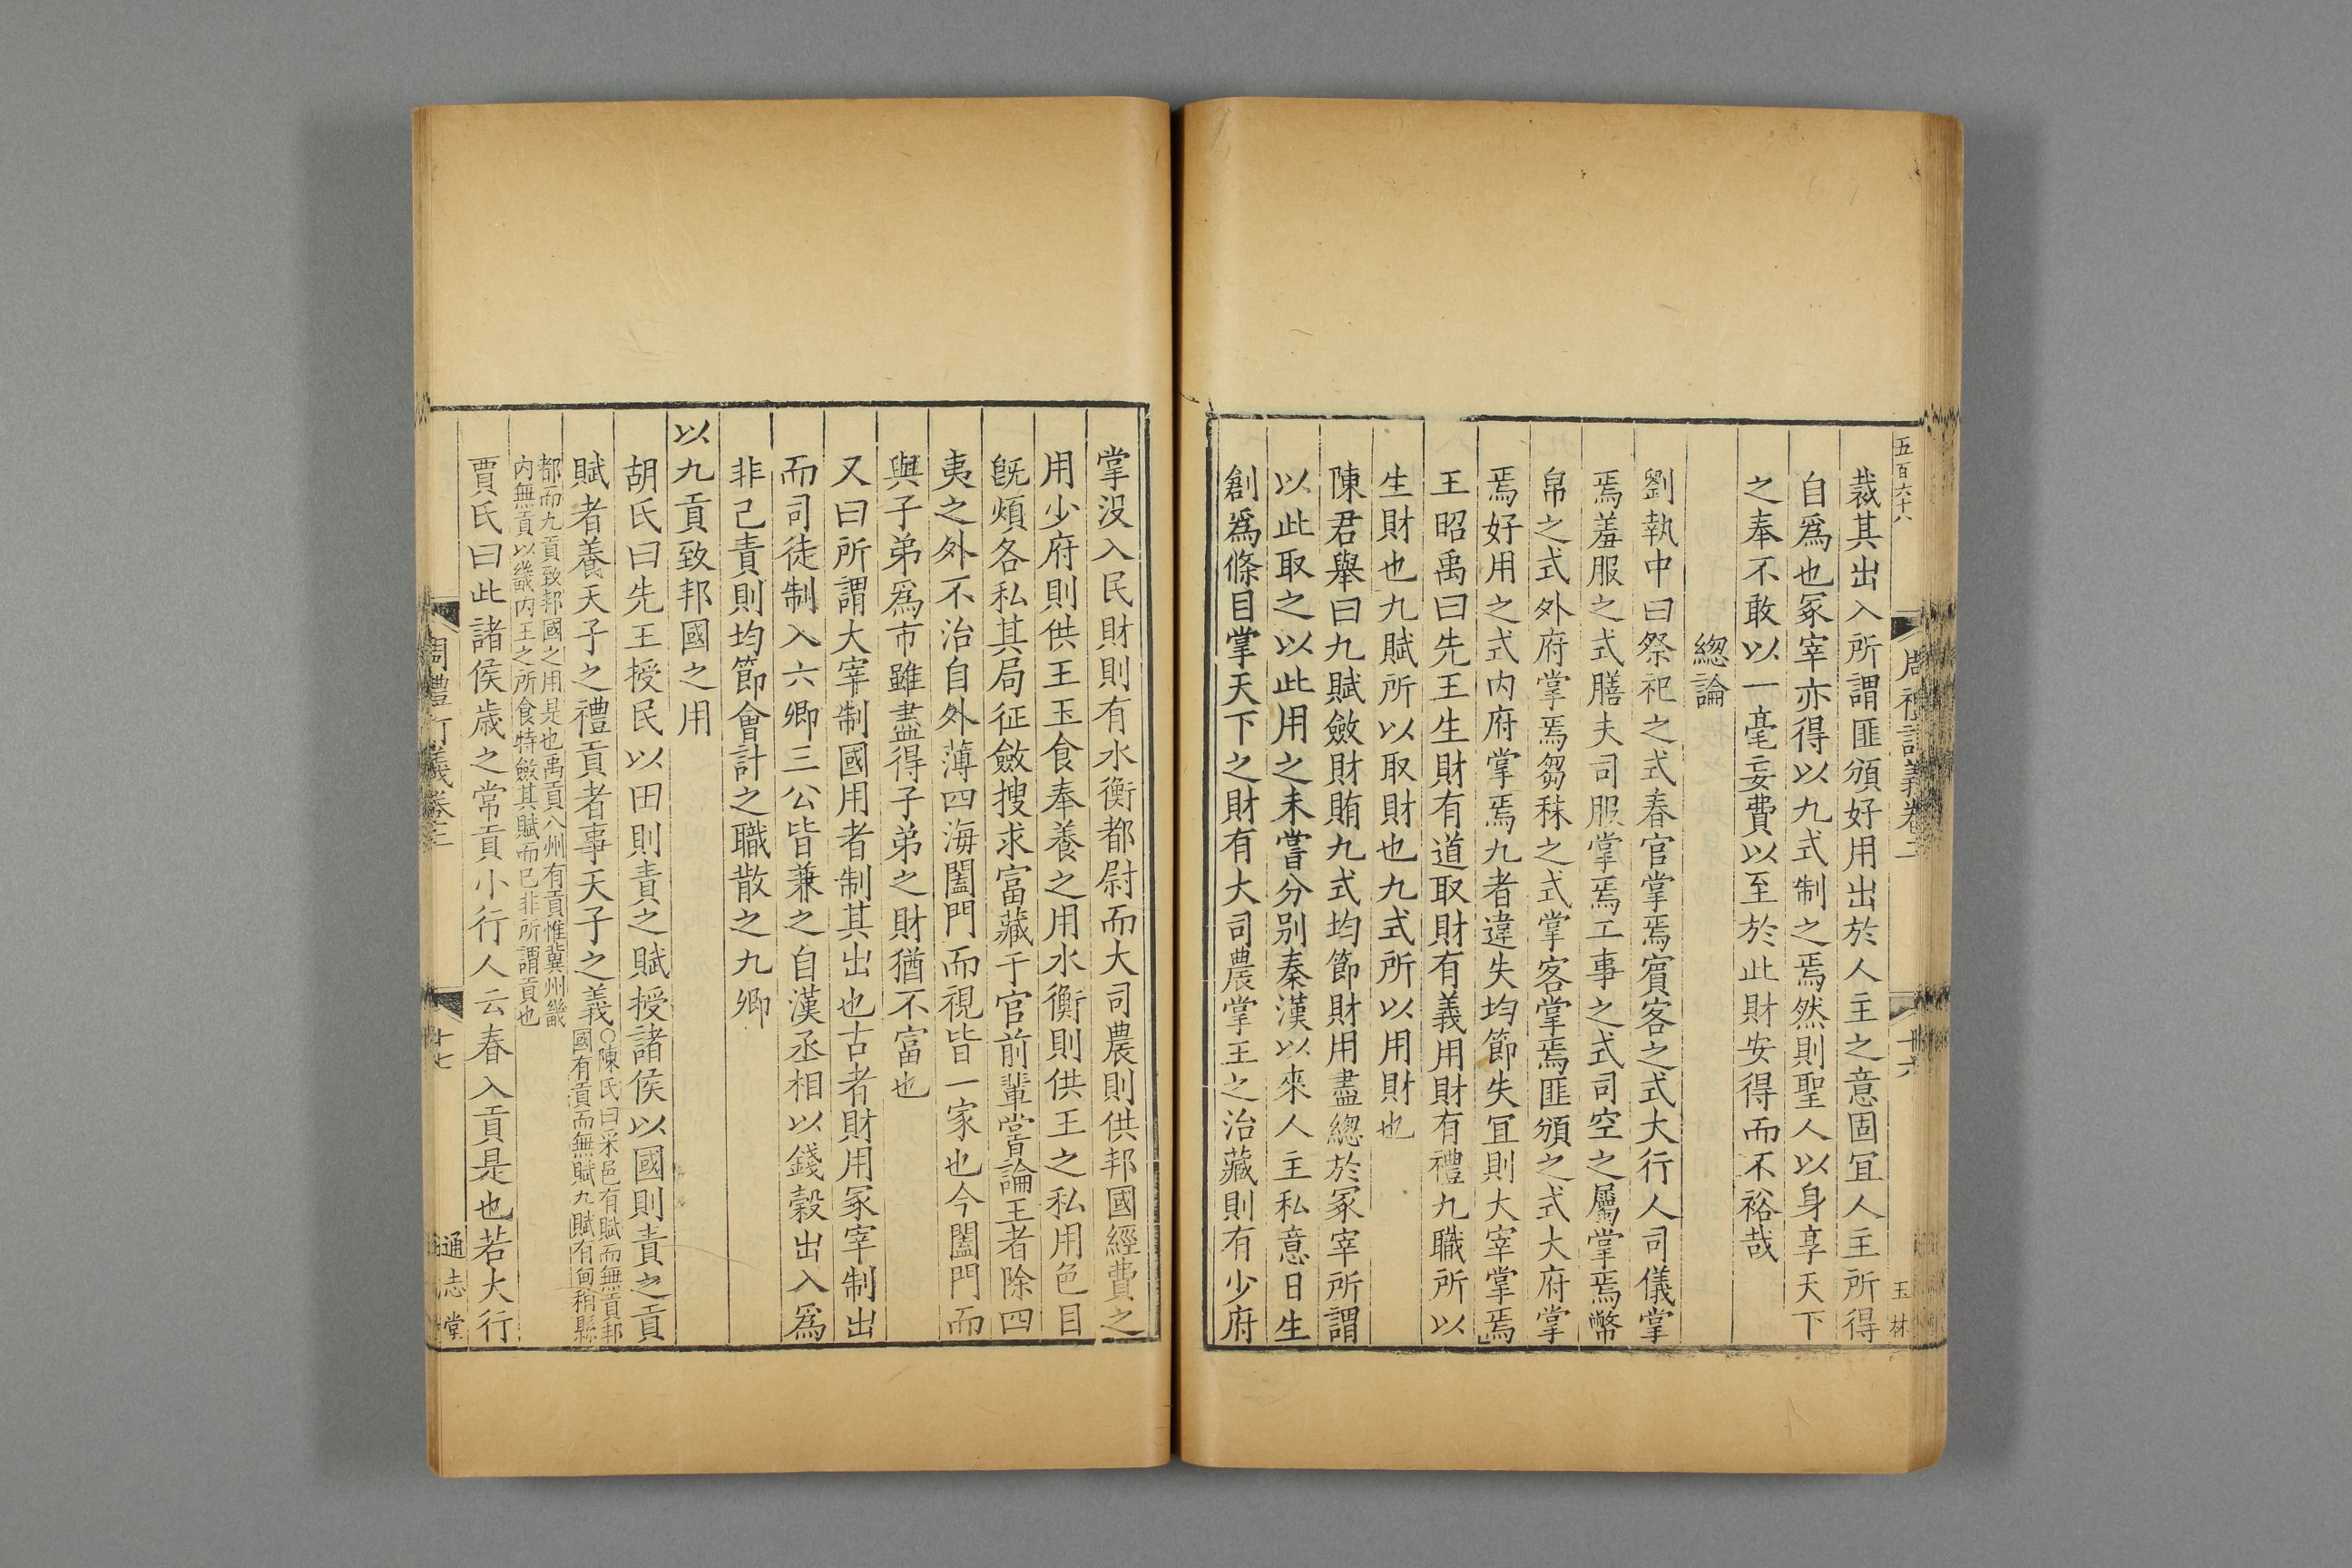 五百六十八
周禮訂義卷二
十六
玉林
裁其出入所謂匪頒好用出於人主之意固宜人主所得
自爲也冢宰亦得以九式制之焉然則聖人以身享天下
之奉不敢以一毫妄費以至於此財安得而不裕哉
緫論
劉執中曰祭祀之式春官掌焉賓客之式大行人司儀掌
焉羞服之式膳夫司服掌焉工事之式司空之屬掌焉幣
帛之式外府掌焉芻秣之式掌客掌焉匪頒之式大府掌
焉好用之式内府掌焉九者違失均節失宜則大宰掌焉
王昭禹曰先王生財有道取財有義用財有禮九職所以
生財也九賦所以取財也九式所以用財也
陳君舉曰九賦斂財賄九式均節財用盡緫於冢宰所謂
以此取之以此用之未嘗分别秦漢以來人主私意日生
創爲條目掌天下之財有大司農掌王之治藏則有少府
掌没入民財則有水衡都尉而大司農則供邦國經費之
用少府則供王玉食奉養之用水衡則供王之私用色目
旣煩各私其局征斂搜求富藏于官前輩甞論王者除四
夷之外不治自外薄四海闔門而視皆一家也今闔門而
與子弟爲市雖盡得子弟之財猶不富也
又曰所謂大宰制國用者制其出也古者財用冢宰制出
而司徒制入六卿三公皆兼之自漢丞相以錢穀出入爲
非己責則均節會計之職散之九卿
以九貢致邦國之用
胡氏曰先王授民以田則責之賦授諸侯以國則責之貢
賦者養天子之禮貢者事天子之義○陳氏曰采邑有賦而無貢邦
國有貢而無賦九賦有甸稍縣
都而九貢致邦國之用是也禹貢八州有貢惟冀州畿
内無貢以畿内王之所食特斂其賦而已非所謂貢也
賈氏曰此諸侯歳之常貢小行人云春入貢是也若大行
周禮訂義卷二
十七
通志堂